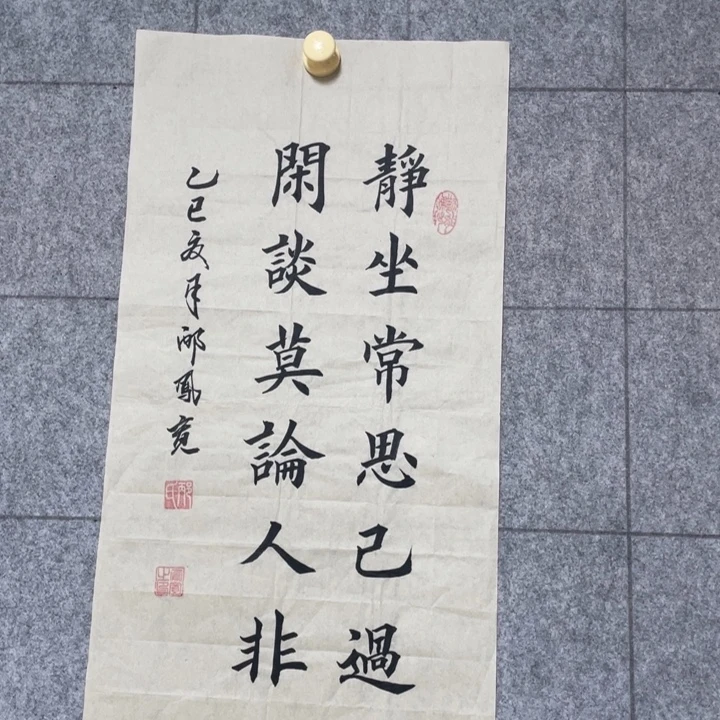 靜坐常思己過
閑談莫論人非
乙巳亥月邴鳳寛